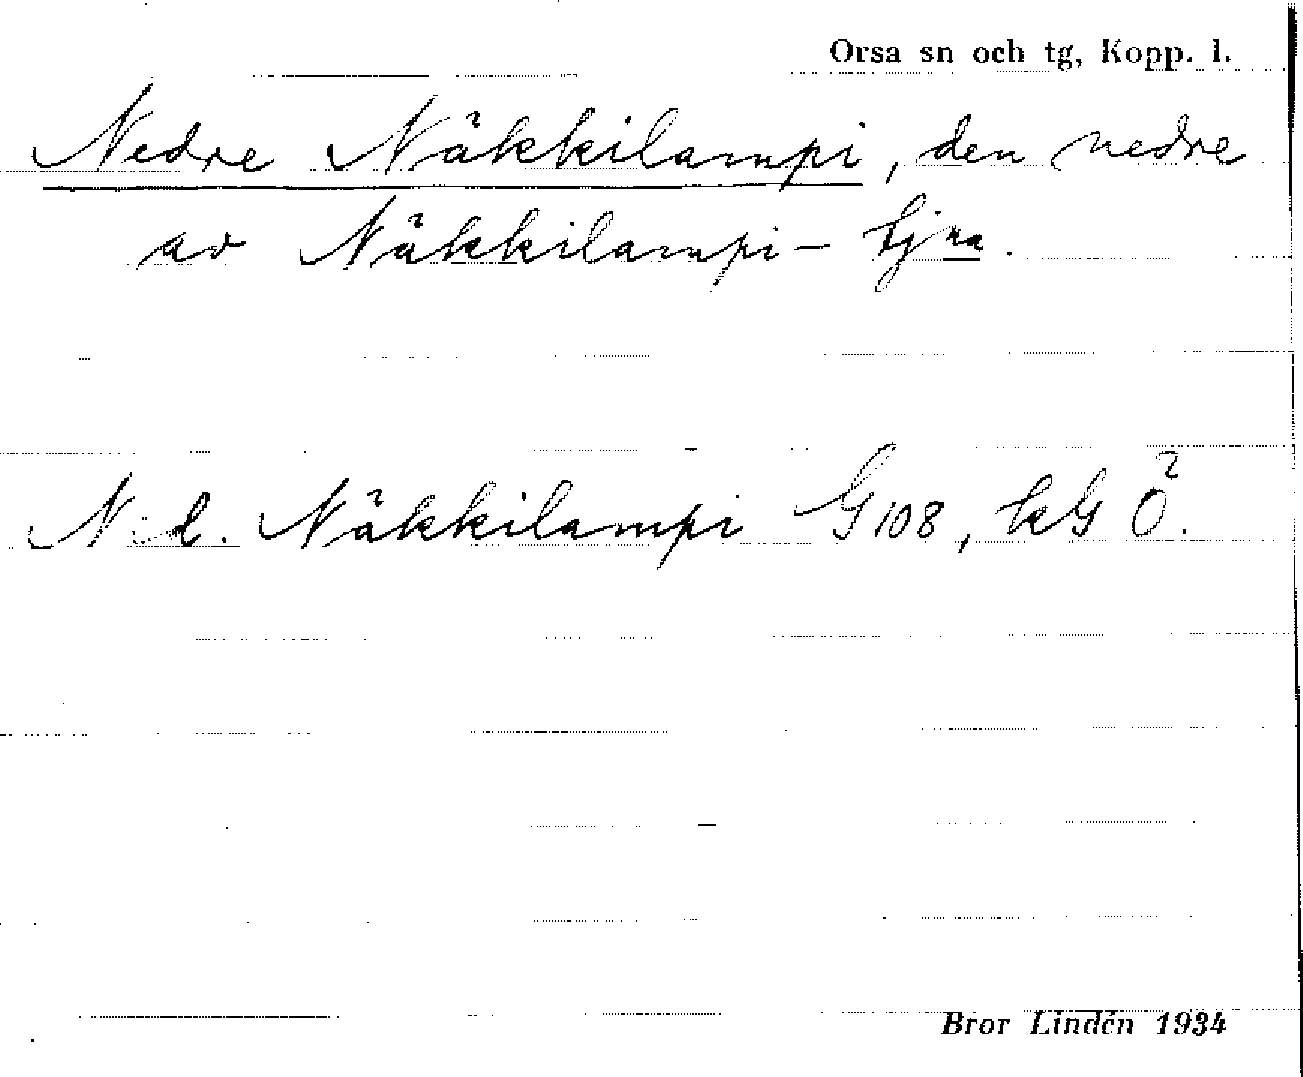 Orsa sn och tg, Kopp. l.
Nedre Näkkilampi, den nedre
av Näkkilampi- tjra.
Ned. Näkkilampi G108, kG Ö.
Bror Lindén 1934